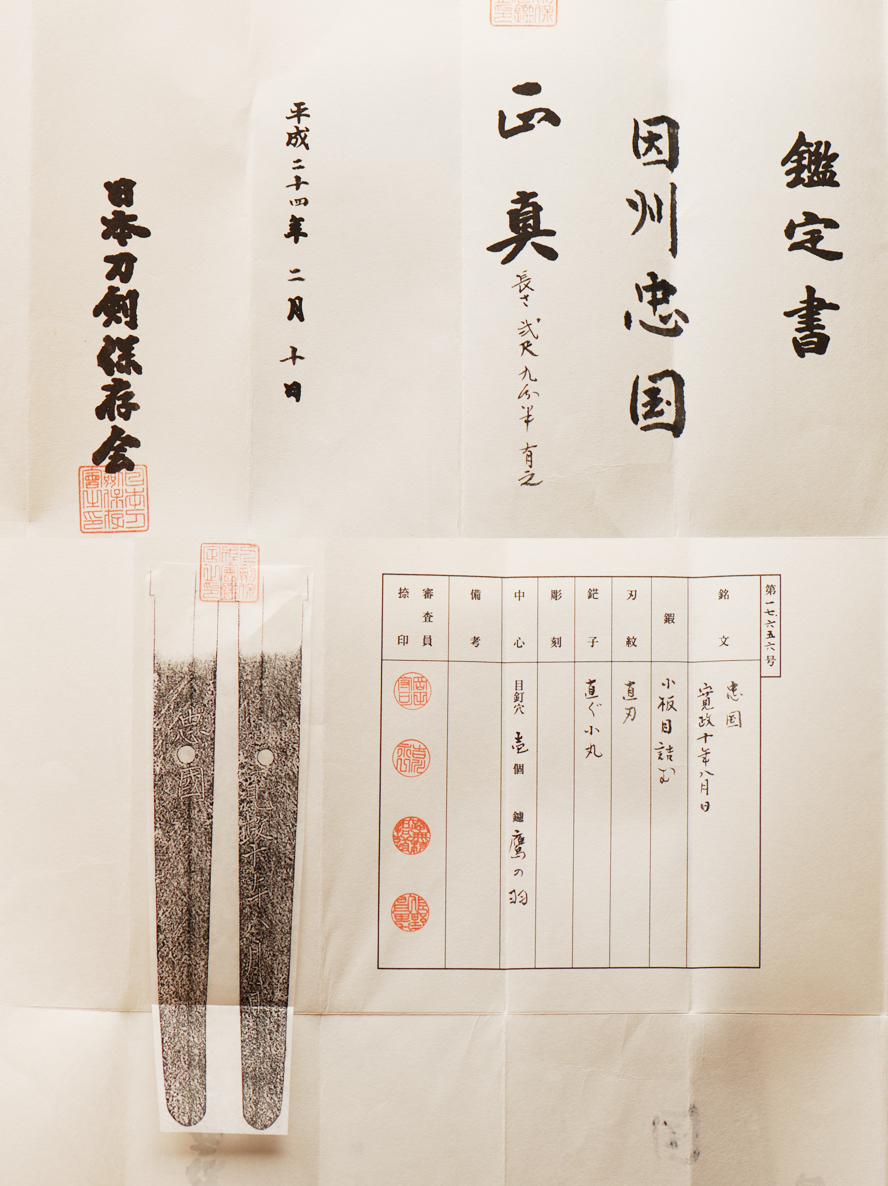 鑑定書
因州忠国
正真
長さ 弐尺九分半 有之
平成二十四年 二月 十日
日本刀剣保存会
第一七六五六号
銘文
忠国
寛政十年八月日
鍜
小板目詰む
刃紋
直刃
鋩子
直ぐ小丸
彫刻
中心
目釘穴 壱個 鑢 鷹の羽
備考
審査員
捺印
忠國